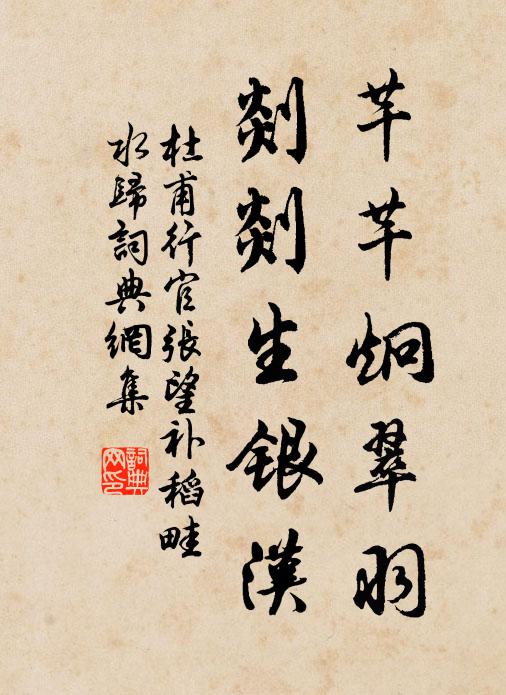 芊芊炯翠羽
剡剡生銀漢
杜甫行官張望补稻畦
水歸詞典網集
詞典網印